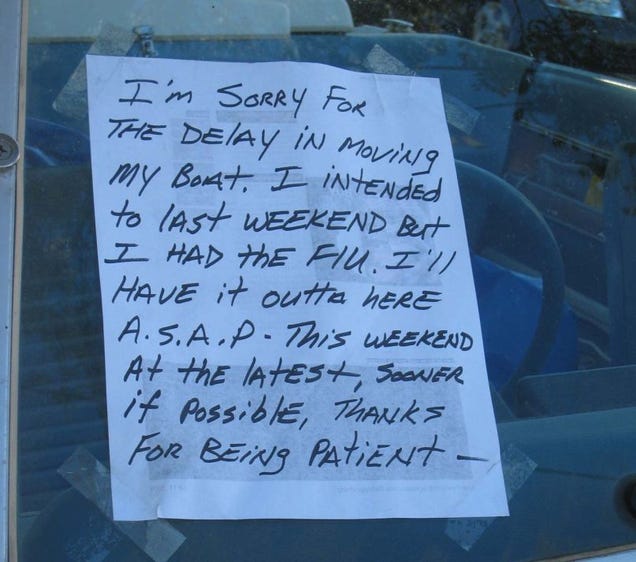 I'm SORRY FOR
THE DELAY IN MOVING
MY BOAT. I INTENDED
to LAST WEEKEND But
I HAD the FLU. I'll
HAVE it outta HERE
A.S.A.P - This WEEKEND
At the LATEST, SOONER
if Possible, THANKS
FOR BEING PATIENT —